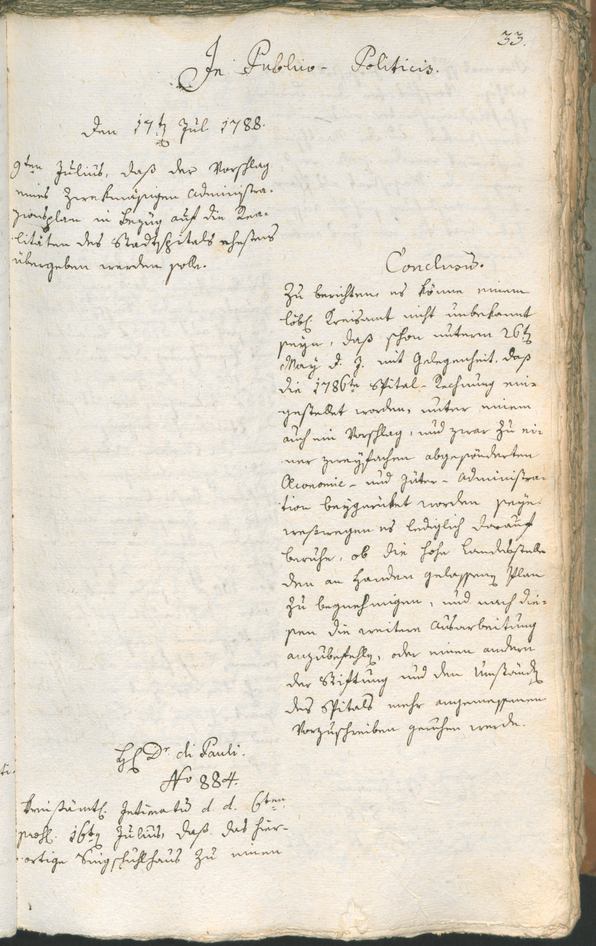 33.
In Publico-Politicis.
Den 17ten Jul 1788.
9ten Julius, daß der Vorschlag
eines zwekmäsigen Administra-
zionsplan in Bezug auf die Rea-
litäten des Stadtspitals ehestens
übergeben werden solle.
Conclusum.
Zu berichten, es könne einem
löbl. Kreisamt nicht unbekannt
seyn, daß schon unterm 26ten
May d. J. mit Gelegenheit, daß
die 1786te Spital-Rechnung ein-
gestellet worden, unter einem
auch ein Vorschlag, und zwar zu ei-
ner zweyfachen abgesönderten
Oeconomie- und Güter-Administra-
tion beygerüket worden seye,
wesswegen es lediglich darauf
beruhe, ob die hohe Landesstelle
den an Handen gelassenen Plan
zu begnehmigen, und nach die-
sen die weitere Ausarbeitung
anzubefehlen, oder einen andern
der Stiftung und den Umständen
des Spitals mehr angemessenen
Vorzuschreiben geruhen werde.
H. Dr. di Pauli.
No 884.
Kreisämtl. Intimatum d. d. 6ten
praes. 16ten Julius, daß das hier-
ortige Singschuhlhaus zu einen